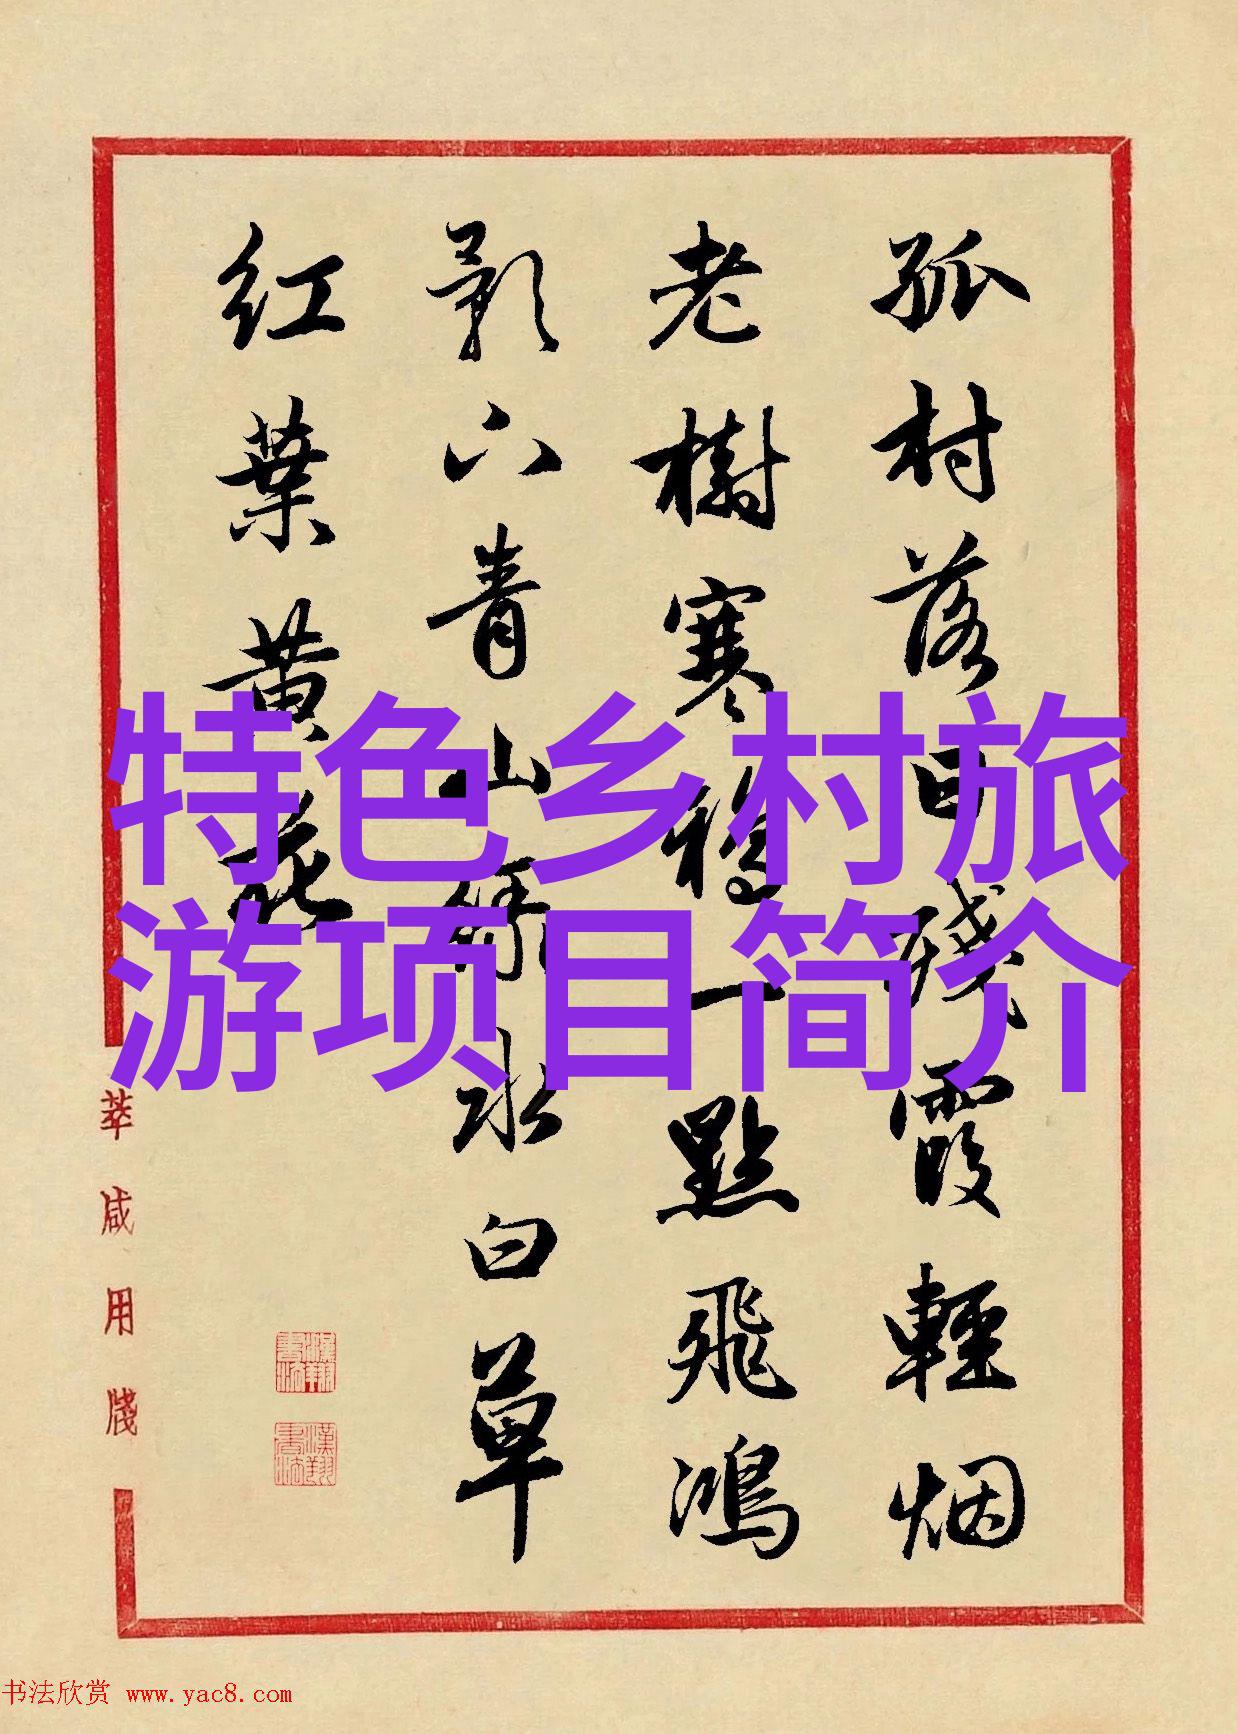 孤村落日残霞輕烟
老樹寒鴉一點飛鴻
影下青山綠水白草
红葉黄花
特色乡村旅
游项目简介
萃咸用牋
书法欣赏 www.yac8.com